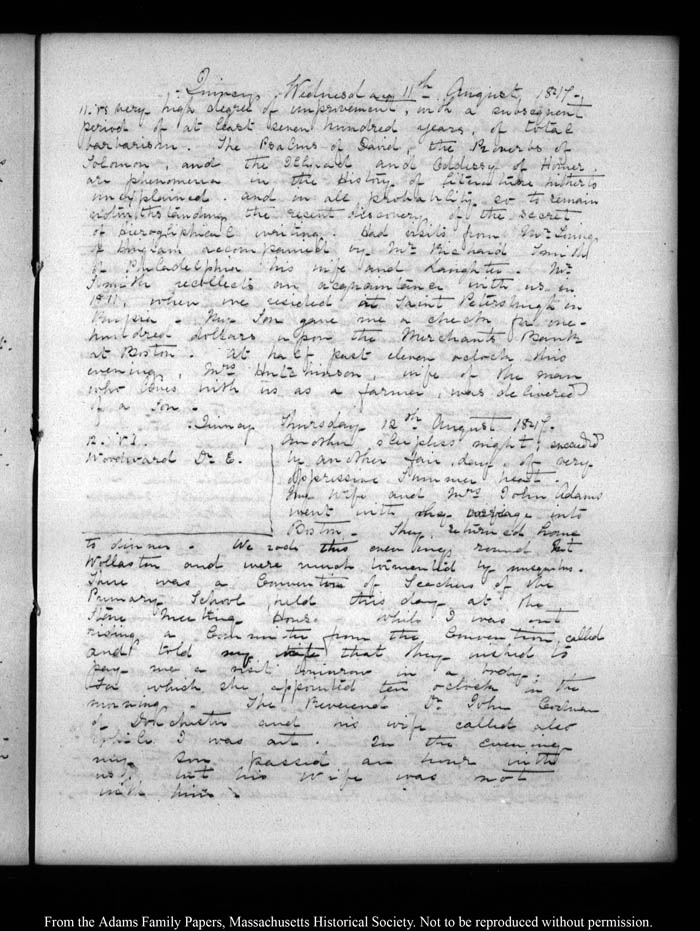 Quincy Wednesday 11th August 1847.
11. VI very high degree of improvement, with a subsequent
period of at least seven hundred years, of total
barbarism. The Psalms of David, the Proverbs of
Solomon, and the Illiad and Oddessy of Homer
are phenomena in the History of literature hitherto
unexplained. and in all probability so to remain
notwithstanding the recent discovery of the secret
of hieroglyphical writing. Had visits from Mr
of Hingham accompanied by Mr Richard Smith
of Philadelphia his wife and daughter. Mr
Smith recollects an acquaintance with us in
1811, when we resided at Saint Petersburgh in
Russia. My Son gave me a check for one
hundred dollars upon the Merchants Bank
at Boston. At half past eleven oclock this
evening, Mrs Hutchinson, wife of the man
who lives with us as a farmer, was delivered
of a Son.
Quincy Thursday 12th August 1847.
12. VI.
Woodward Dr. E.
Another sleepless night, succeeded
by another fair day of very
oppressive Summer heat.
My Wife and Mrs John Adams
went with the carriage into
Boston. They returned home
to dinner. We rode this evening round
Wollaston and were much tormented by musquitos.
There was a Convention of Teachers of the
Primary School held this day at the
Stone Meeting House. While I was out
riding a Committee from the Convention, called
and told my wife that they wished to
pay me a visit tomorrow in a body;
For which she appointed ten oclock in the
morning. The Reverend Dr. John Codman
of Dorchester and his wife called also
while I was out. In the evening
my son passed an hour with
us, but his Wife was not
with him.
From the Adams Family Papers, Massachusetts Historical Society. Not to be reproduced without permission.